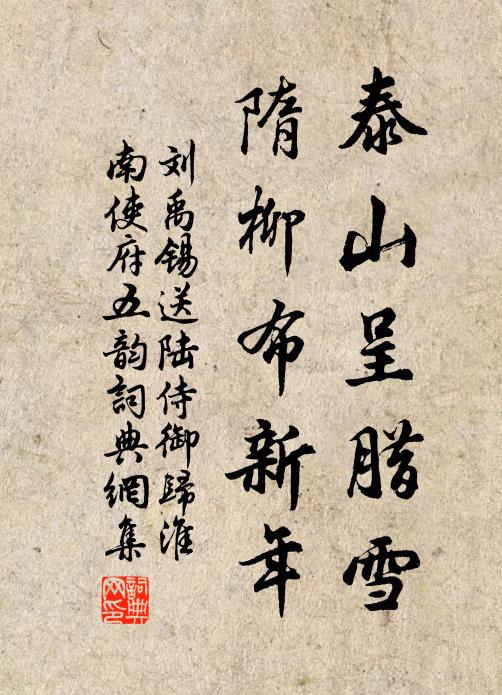 泰山呈腊雪
隋柳布新年
刘禹锡送陆侍御歸淮
南使府五韵詞典網集
詞典网印